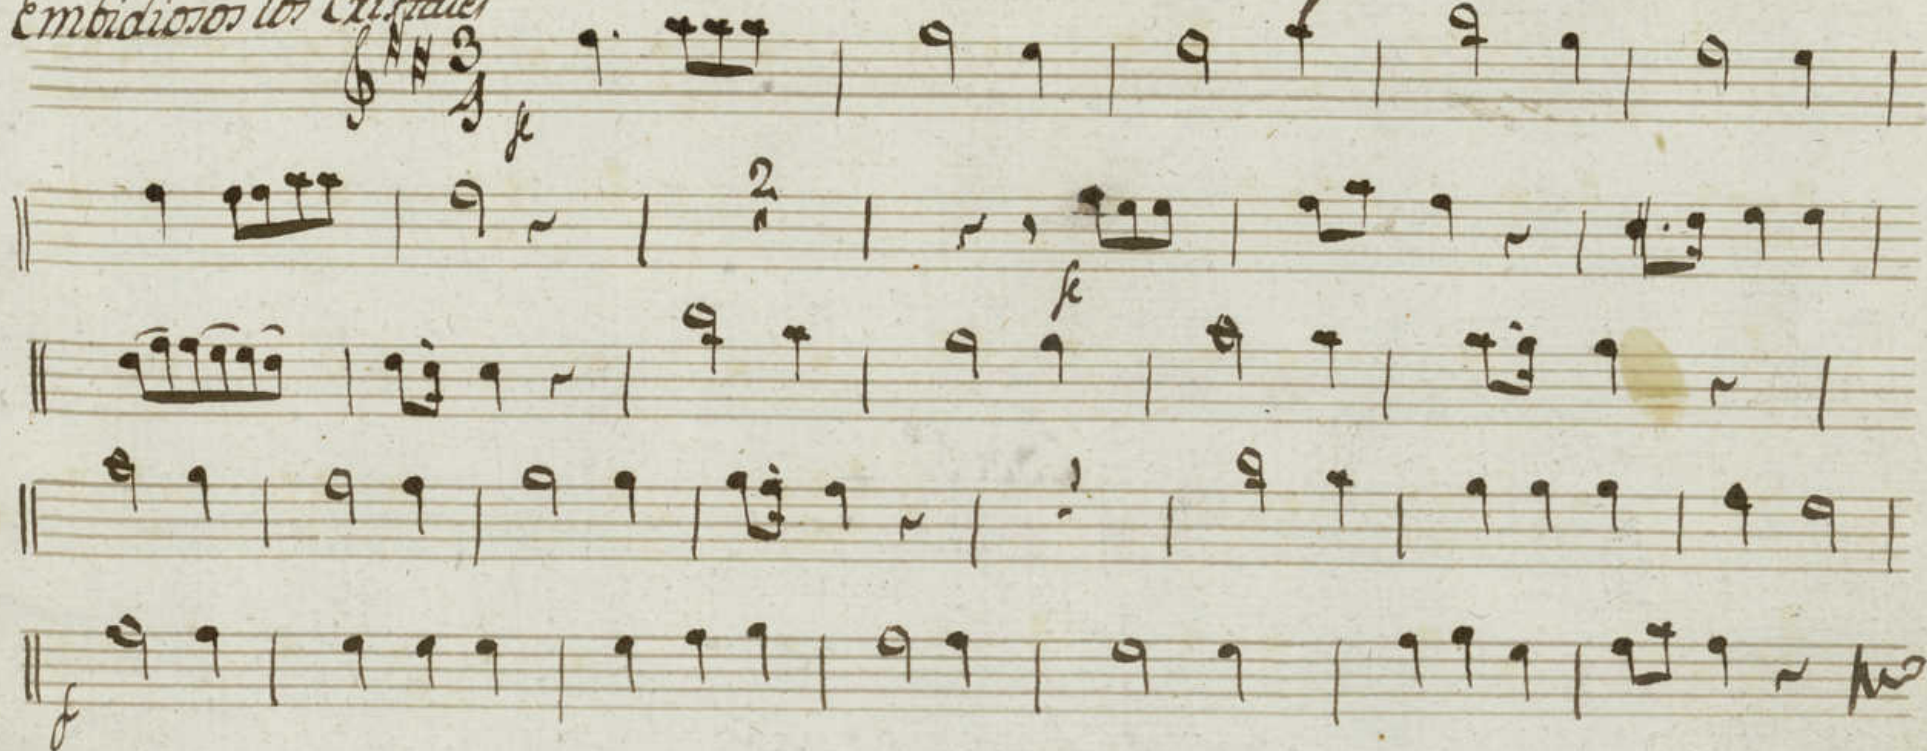 embidiosos los Cristales
3
4
2
f